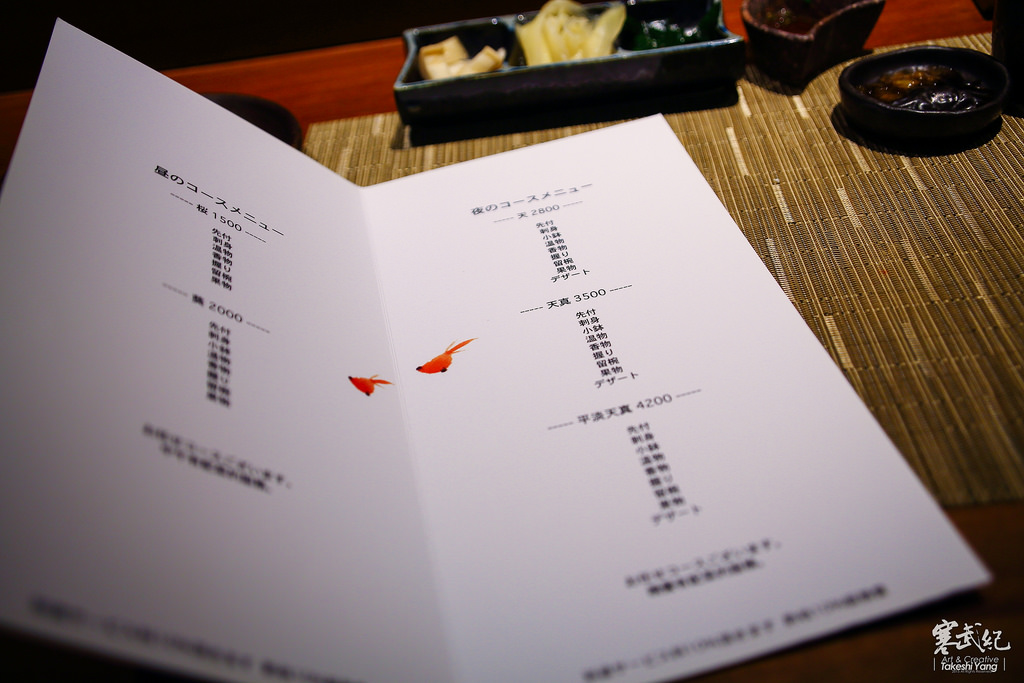 昼のコースメニュー
----- 桜 1500 -----
先付
刺身
温物
香物
握り
留椀
果物
2000 -----
先付
刺身
小鉢
温物
香物
握り
留椀
果物
夜のコースメニュー
----- 天 2800 -----
先付
刺身
小鉢
温物
香物
握り
留椀
果物
デザート
----- 天真 3500 -----
先付
刺身
小鉢
温物
香物
握り
留椀
果物
デザート
----- 平淡天真 4200 -----
先付
刺身
小鉢
温物
香物
握り
留椀
果物
デザート
寒武紀
Art & Creative
Takeshi Yang